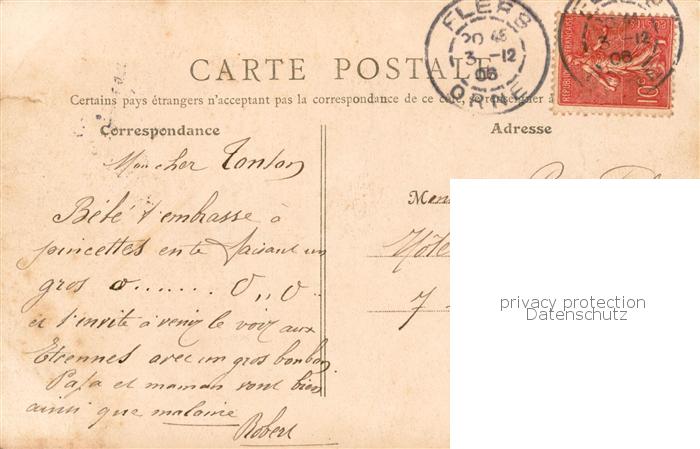 FLERS
20 45
3 -12
06
ORNE
FLERS
3 -12
06
REPUBLIQUE FRANÇAISE
10
CARTE POSTALE
Certains pays étrangers n'acceptant pas la correspondance de ce côté, se renseigner à
Correspondance
Adresse
Mon cher Tonton
Bébé t'embrasse à
pincettes en te faisant un
gros o....... O,,O
et t'invite à venir le voir aux
Etrennes avec un gros bonbon
Papa et maman vont bien
ainsi que malaine
Robert
Hôte
7
privacy protection
Datenschutz